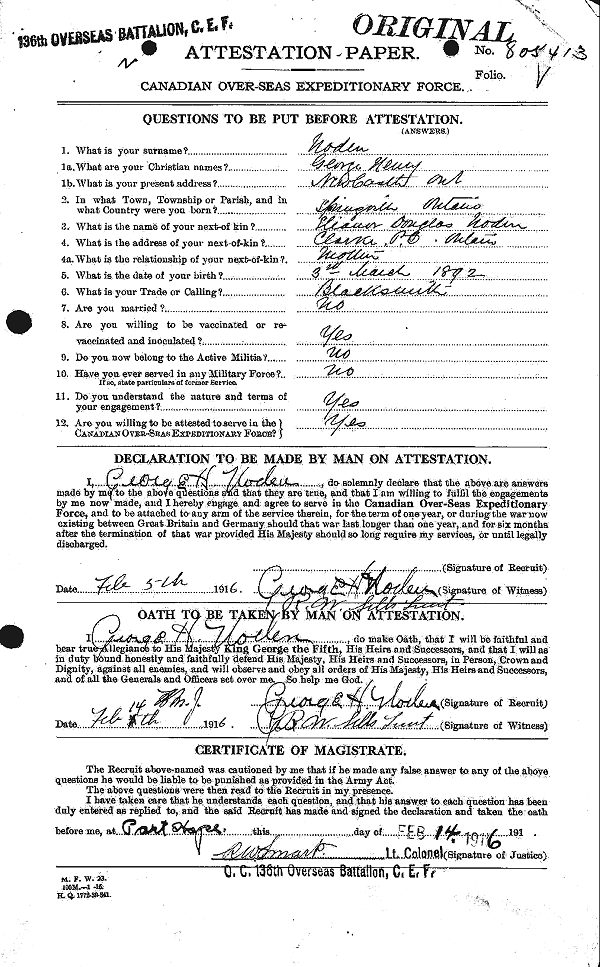 136th OVERSEAS BATTALION, C. E. F.
ORIGINAL
ATTESTATION PAPER.
No. 805413
Folio.
CANADIAN OVER-SEAS EXPEDITIONARY FORCE.
QUESTIONS TO BE PUT BEFORE ATTESTATION.
(ANSWERS.)
1. What is your surname? Noden
1a. What are your Christian names? George Henry
1b. What is your present address? Newcastle Ont
2. In what Town, Township or Parish, and in
what Country were you born? Ontario
3. What is the name of your next-of-kin? Eleanor Douglas Noden
4. What is the address of your next-of-kin? Clarke P.O. Ontario
4a. What is the relationship of your next-of-kin? Mother
5. What is the date of your birth? 3rd March 1892
6. What is your Trade or Calling? Blacksmith
7. Are you married? No
8. Are you willing to be vaccinated or re-
vaccinated and inoculated? Yes
9. Do you now belong to the Active Militia? No
10. Have you ever served in any Military Force? No
If so, state particulars of former Service.
11. Do you understand the nature and terms of
your engagement? Yes
12. Are you willing to be attested to serve in the
CANADIAN OVER-SEAS EXPEDITIONARY FORCE? Yes
DECLARATION TO BE MADE BY MAN ON ATTESTATION.
I, George H Noden, do solemnly declare that the above are answers
made by me to the above questions and that they are true, and that I am willing to fulfil the engagements
by me now made, and I hereby engage and agree to serve in the Canadian Over-Seas Expeditionary
Force, and to be attached to any arm of the service therein, for the term of one year, or during the war now
existing between Great Britain and Germany should that war last longer than one year, and for six months
after the termination of that war provided His Majesty should so long require my services, or until legally
discharged.
(Signature of Recruit)
Date Feb 5th 1916. George H Noden (Signature of Witness)
OATH TO BE TAKEN BY MAN ON ATTESTATION.
I, George H. Noden, do make Oath, that I will be faithful and
bear true Allegiance to His Majesty King George the Fifth, His Heirs and Successors, and that I will as
in duty bound honestly and faithfully defend His Majesty, His Heirs and Successors, in Person, Crown and
Dignity, against all enemies, and will observe and obey all orders of His Majesty, His Heirs and Successors,
and of all the Generals and Officers set over me. So help me God.
George H Noden (Signature of Recruit)
Date Feb 14th 1916 (Signature of Witness)
CERTIFICATE OF MAGISTRATE.
The Recruit above-named was cautioned by me that if he made any false answer to any of the above
questions he would be liable to be punished as provided in the Army Act.
The above questions were then read to the Recruit in my presence.
I have taken care that he understands each question, and that his answer to each question has been
duly entered as replied to, and the said Recruit has made and signed the declaration and taken the oath
before me, at Port Hope this day of FEB 14 1916 191 .
R W Smart Lt. Colonel (Signature of Justice)
O. C. 136th Overseas Battalion, C. E. F.
M. F. W. 23.
H. Q. 1772-39-841.